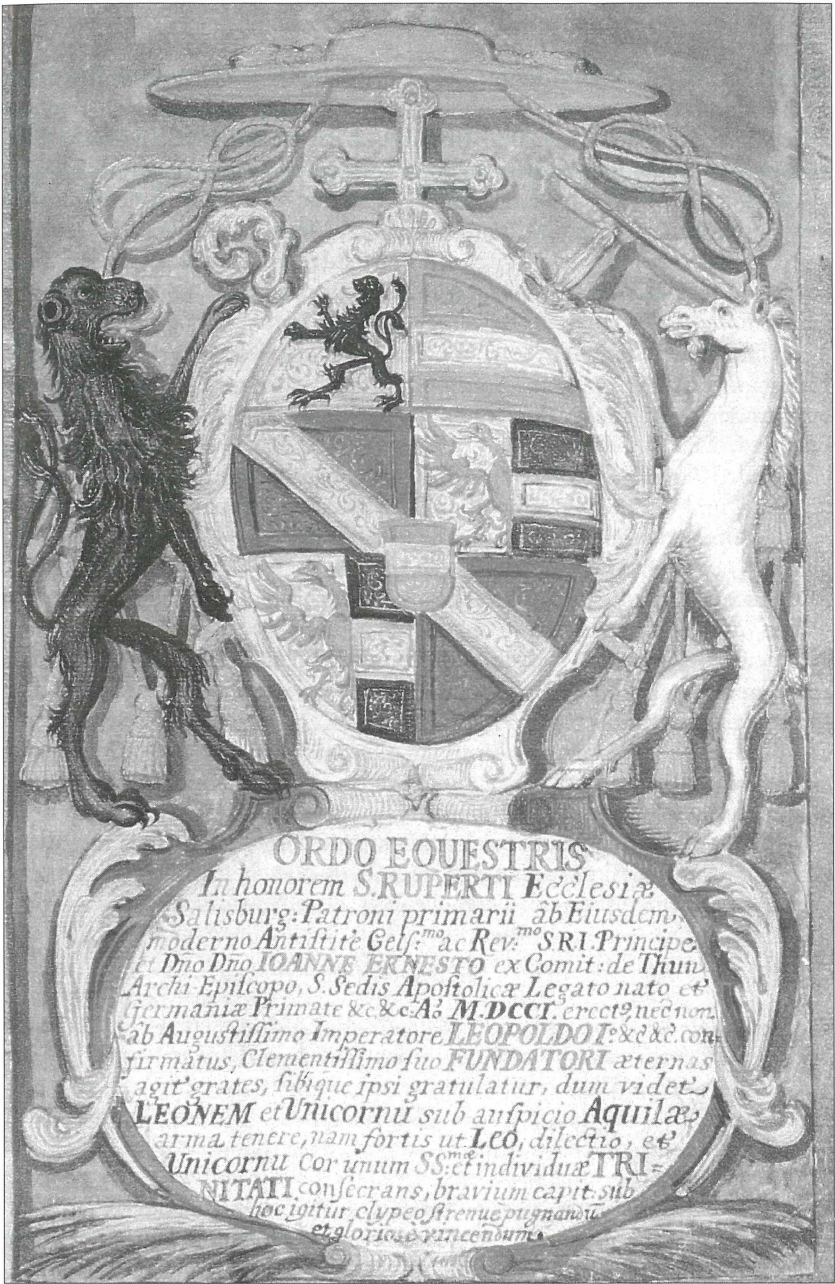 ORDO EQUESTRIS
In honorem S. RUPERTI Ecclesiæ
Salisburg: Patroni primarii âb Eiusdem
moderno Antistite Cels:mo ac Rev:mo S.R.I. Principe
et Dño Dño IOANNE ERNESTO ex Comit: de Thun
Archi Episcopo, S. Sedis Apostolicæ Legato nato et
Germaniæ Primate &c &c: Ao. M.DCCI. erect9, nec non
âb Augustissimo Imperatore LEOPOLDO I: &c &c. con-
firmatus, Clementissimo suo FUNDATORI æternas
agit grates, sibique ipsi gratulatur, dum videt
LEONEM et Unicornu sub auspicio Aquilæ
arma tenere, nam fortis ut LEO, dilectio, et
Unicornu cor unum SS:mæ et individuæ TRI=
NITATI consecrans, bravium capit: sub
hoc igitur clypeo strenue pugnandũ
et gloriosè vincendum.